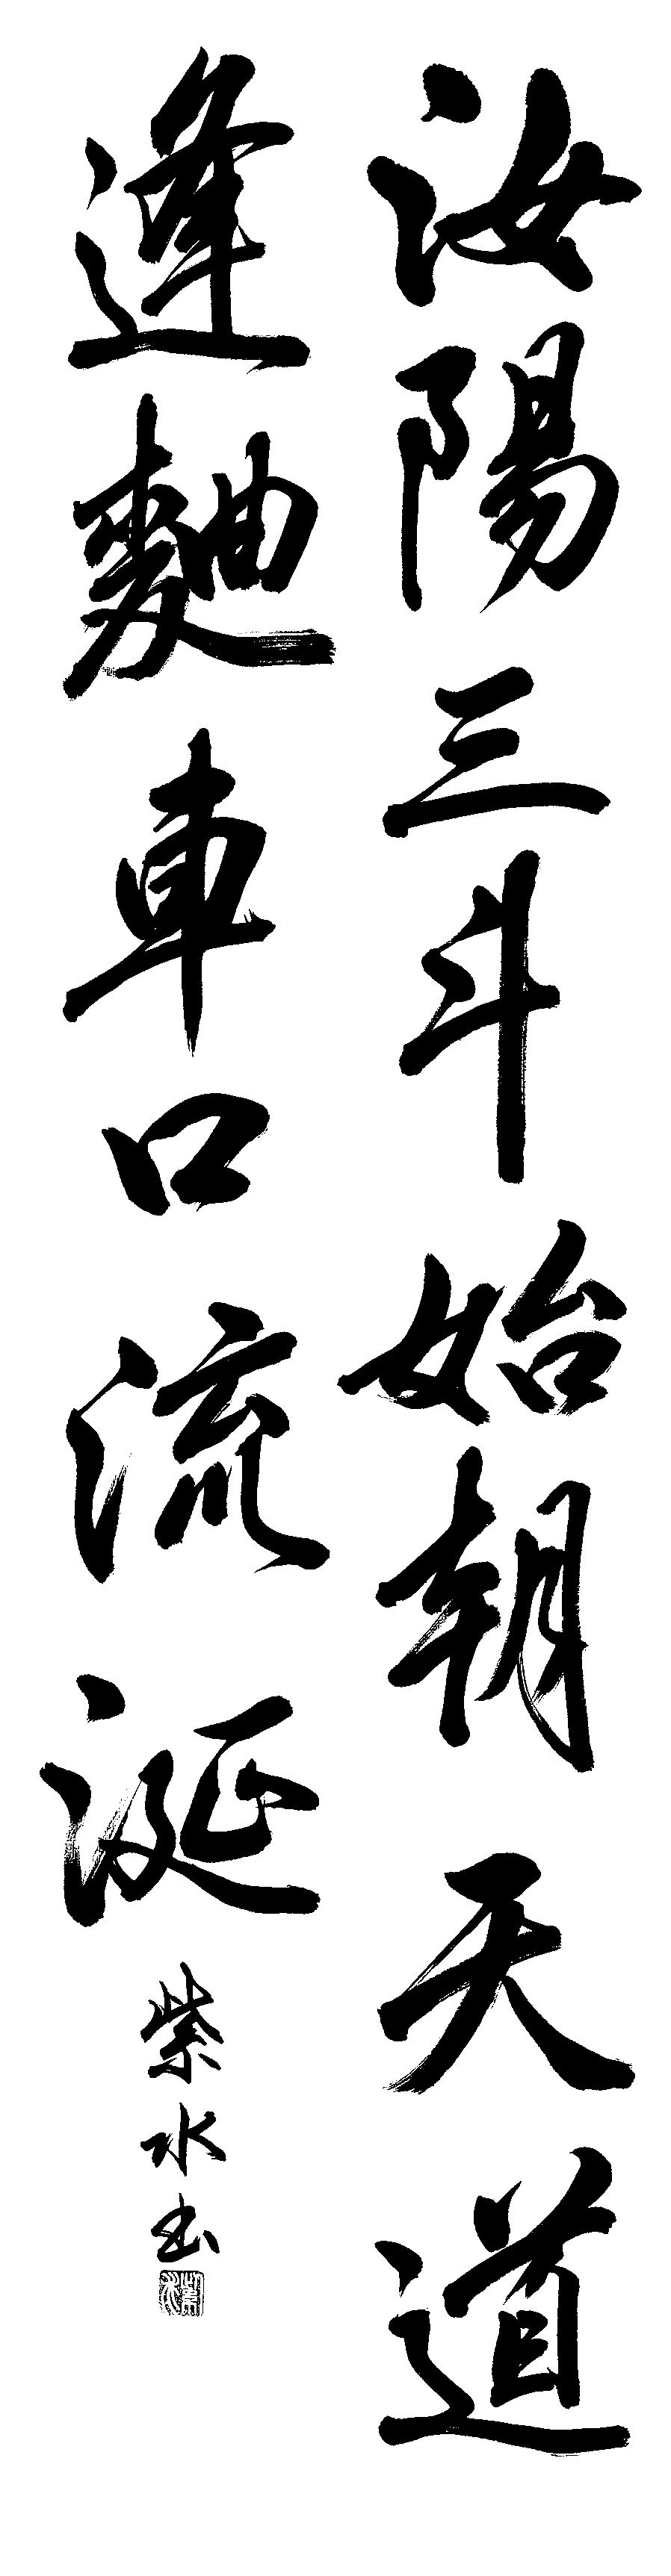 汝陽三斗始朝天道
逢麹車口流涎
紫水書